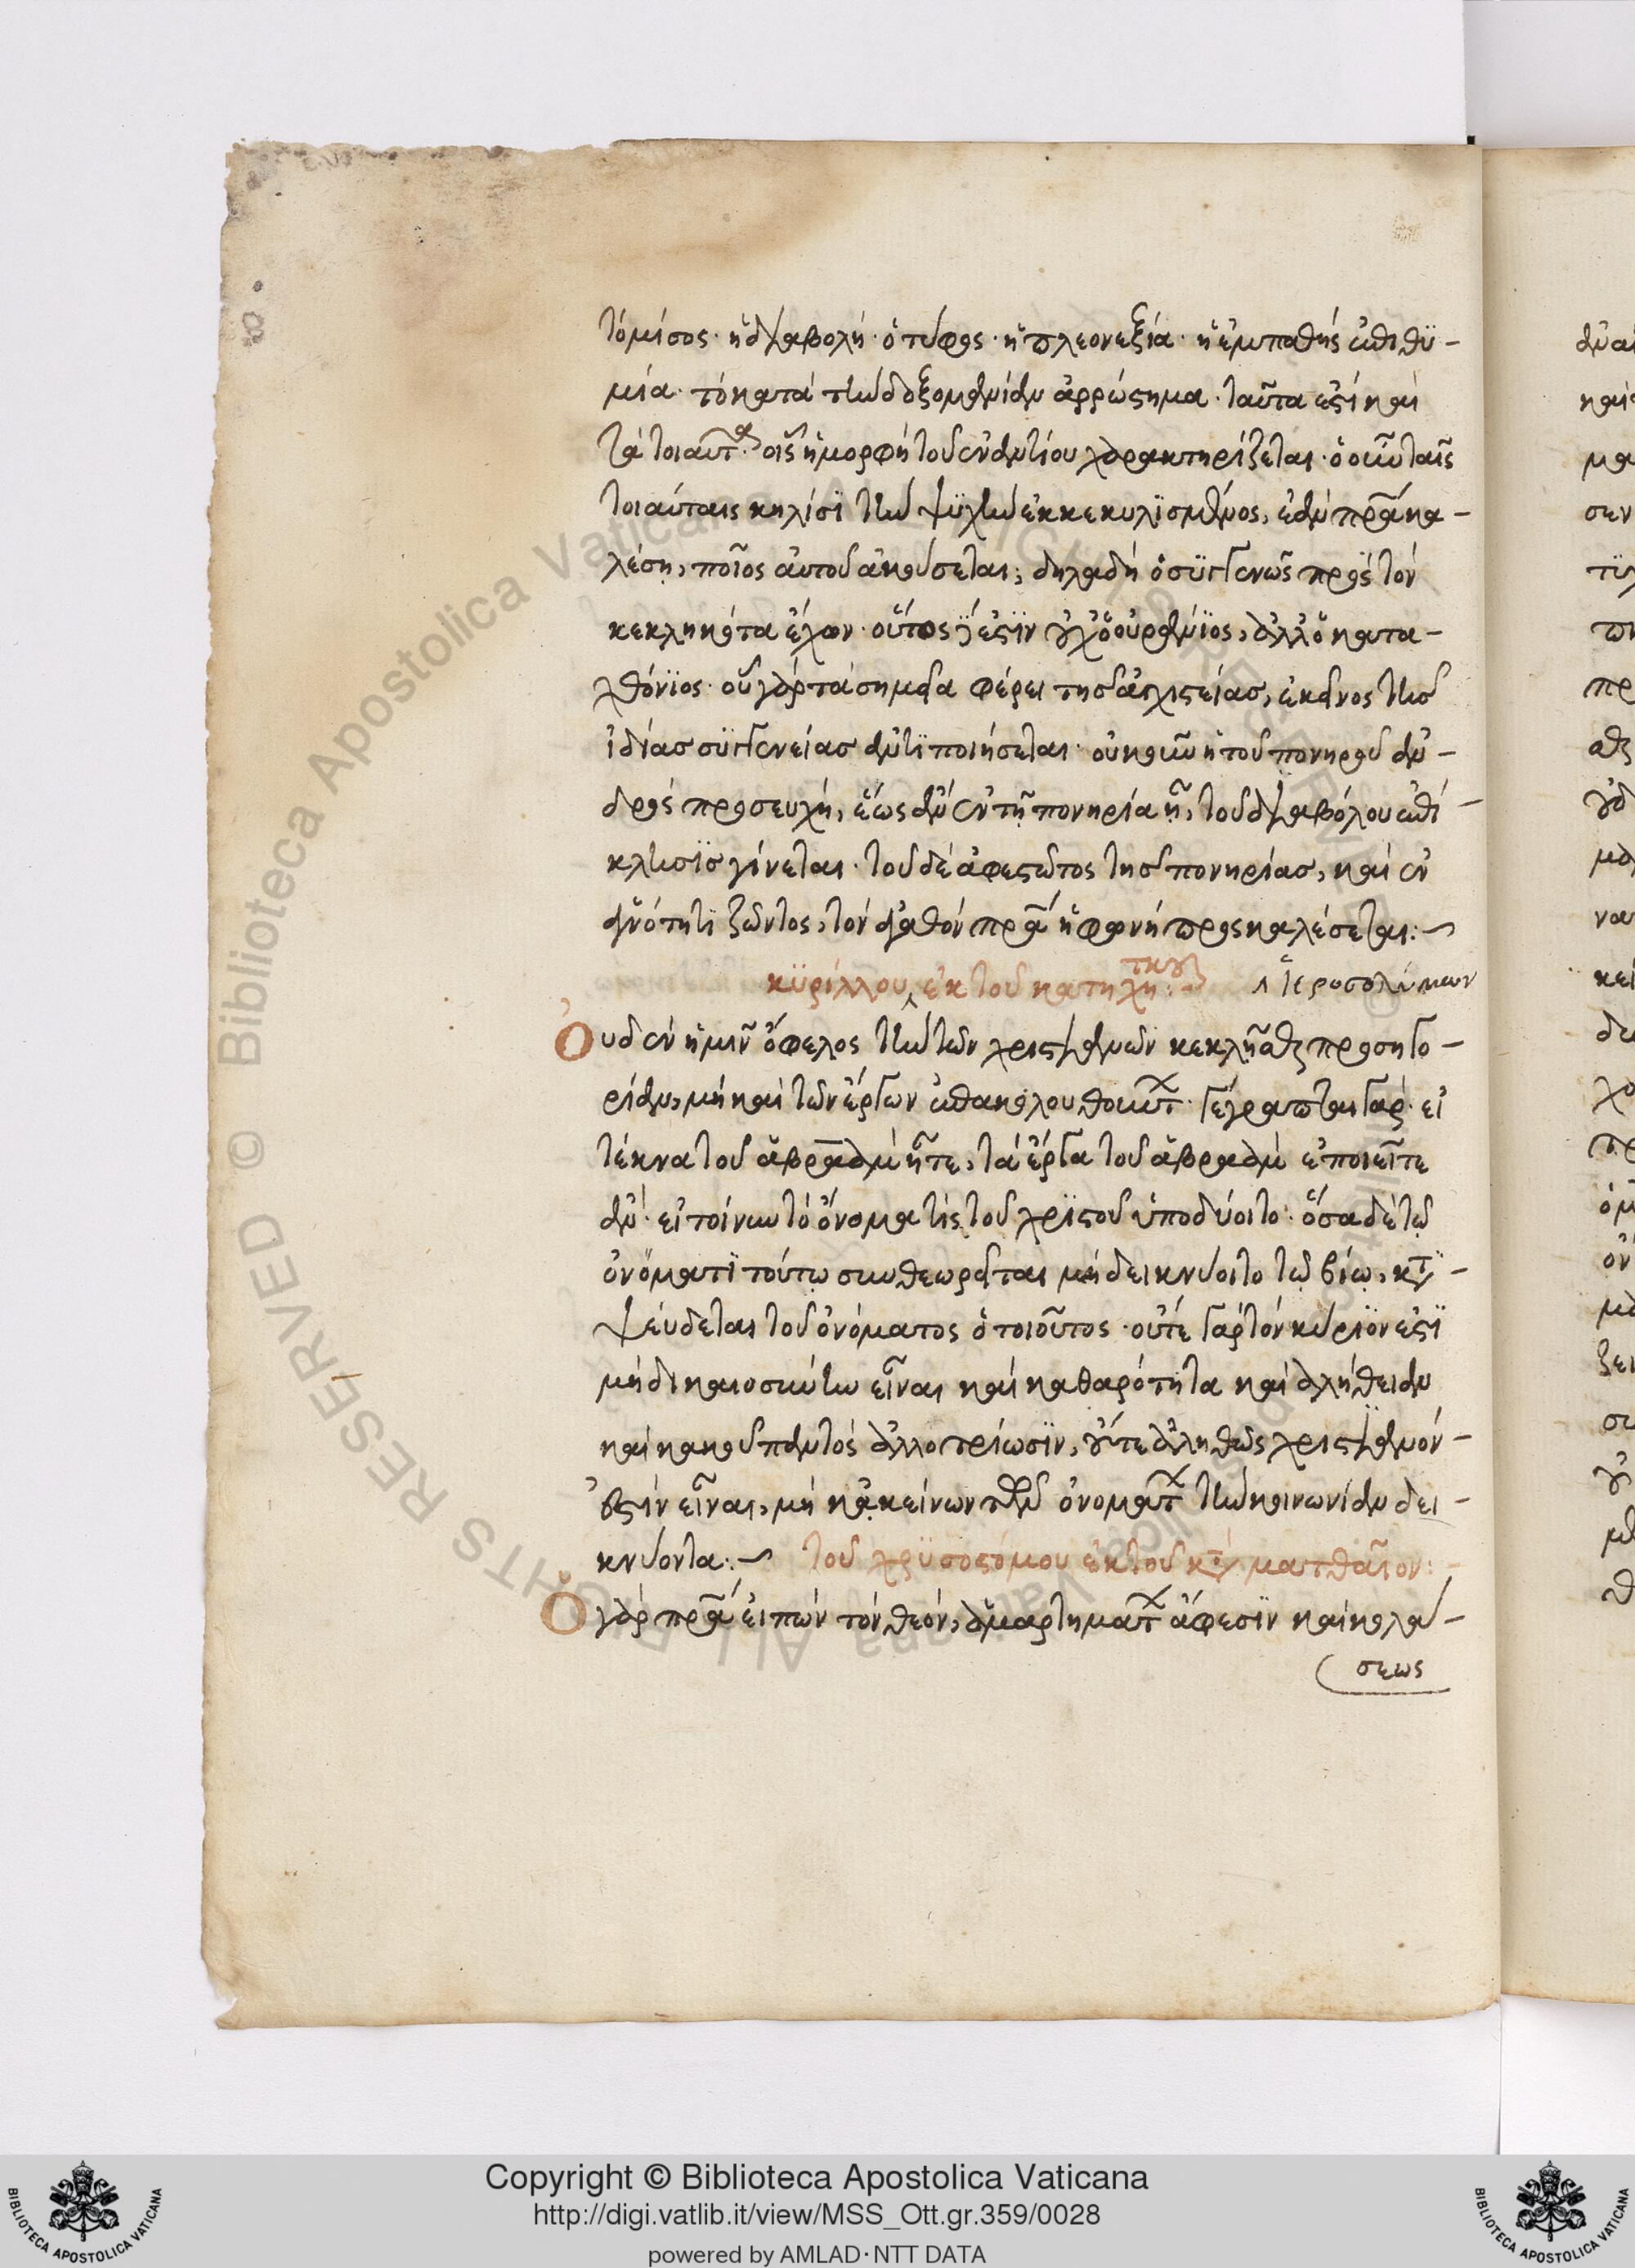 τὸ μίσος· ἡ διαβολή· ὁ τύφος· ἡ πλεονεξία· ἡ ἐμπαθὴς ἐπιθϋ-
μία· τὸ κατὰ τὴν δοξομανίαν ἀρρώστημα· ταῦτα ἐστὶ καὶ
τὰ τοιαῦτα· οἷς ἡ μορφὴ τοῦ ἐναντίου χαρακτηρίζεται· ὁ οὖν ταῖς
τοιαύταις κηλίσϊ τὴν ψϋχὴν ἐκκεκυλϊσμένος, ἐὰν πρ̅α κα-
λέσῃ, ποῖος αὐτοῦ ἀκούσεται; δηλαδὴ ὁ σϋγγενῶς πρὸς τὸν
κεκληκότα ἔχων· οὗτος δέ ἐστϊν οὐχ ὁ οὐράνϊος, ἀλλ' ὁ κατα-
χθόνϊος· οὗ γὰρ τὰ σημεῖα φέρει τῆς ἀγχιστείας, ἐκεῖνος τῆς
ἰδίας σϋγγενείας ἀντϊποιήσεται· οὐκοῦν ἡ τοῦ πονηροῦ ἀν-
δρὸς προσευχὴ, ἕως ἂν ἐν τῇ πονηρίᾳ ᾖ, τοῦ διαβόλου ἐπί-
κλησϊς γίνεται· τοῦ δὲ ἀφεστῶτος τῆς πονηρίας, καὶ ἐν
ἁγνότητϊ ζῶντος, τὸν ἀγαθὸν πρ̅α ἡ φωνὴ προσκαλέσεται:~
κϋρίλλου, ἐκ τοῦ κατηχητικοῦ:~ Ἱεροσολύμων
Οὐδὲν ἡμῖν ὄφελος τὴν τῶν χριστιανῶν κεκλῆσθαι προσηγο-
ρίαν, μὴ καὶ τῶν ἔργων ἐπακολουθούντων· γέγραπται γάρ· εἰ
τέκνα τοῦ ἀβραὰμ ἦτε, τὰ ἔργα τοῦ ἀβραὰμ ἐποιεῖτε
ἄν· εἰ τοίνυν τὸ ὄνομα τὶς τοῦ χρϊστοῦ ὑποδύοιτο· ὅσα δὲ τῷ
ὀνόματϊ τούτῳ συνθεωρεῖται μὴ δεικνύοιτο τῷ βίῳ, κατα-
ψεύδεται τοῦ ὀνόματος ὁ τοιοῦτος· οὔτε γὰρ τὸν κύρϊον ἐστϊ
μὴ δικαιοσύνην εἶναι καὶ καθαρότητα καὶ ἀλήθειαν
καὶ κακοῦ παντὸς ἀλλοτρίωσϊν, οὔτε ἀληθῶς χριστιανὸν
ἐστὶν εἶναι, μὴ κἀκείνων τῶν ὀνομάτων τὴν κοινωνίαν δει-
κνύοντα:~ τοῦ χρϋσοστόμου ἐκ τοῦ κατὰ ματθαῖον:-
Ὁ γὰρ πρ̅α εἰπὼν τὸν θεόν, ἁμαρτημάτων ἄφεσϊν καὶ κολά-
σεως
Copyright © Biblioteca Apostolica Vaticana
http://digi.vatlib.it/view/MSS_Ott.gr.359/0028
powered by AMLAD·NTT DATA